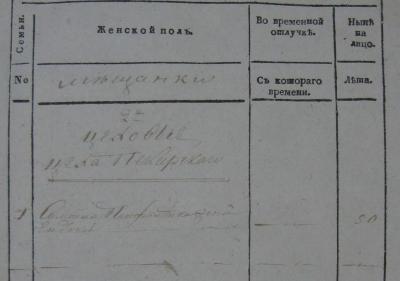 Семьи.
Женской полъ.
Во временной
отлучкѣ.
Нынѣ
на
лицо.
No
мѣщанки
Съ котораго
времени.
Лѣта.
2й
цеховые
цеха Пекарскаго
1
50